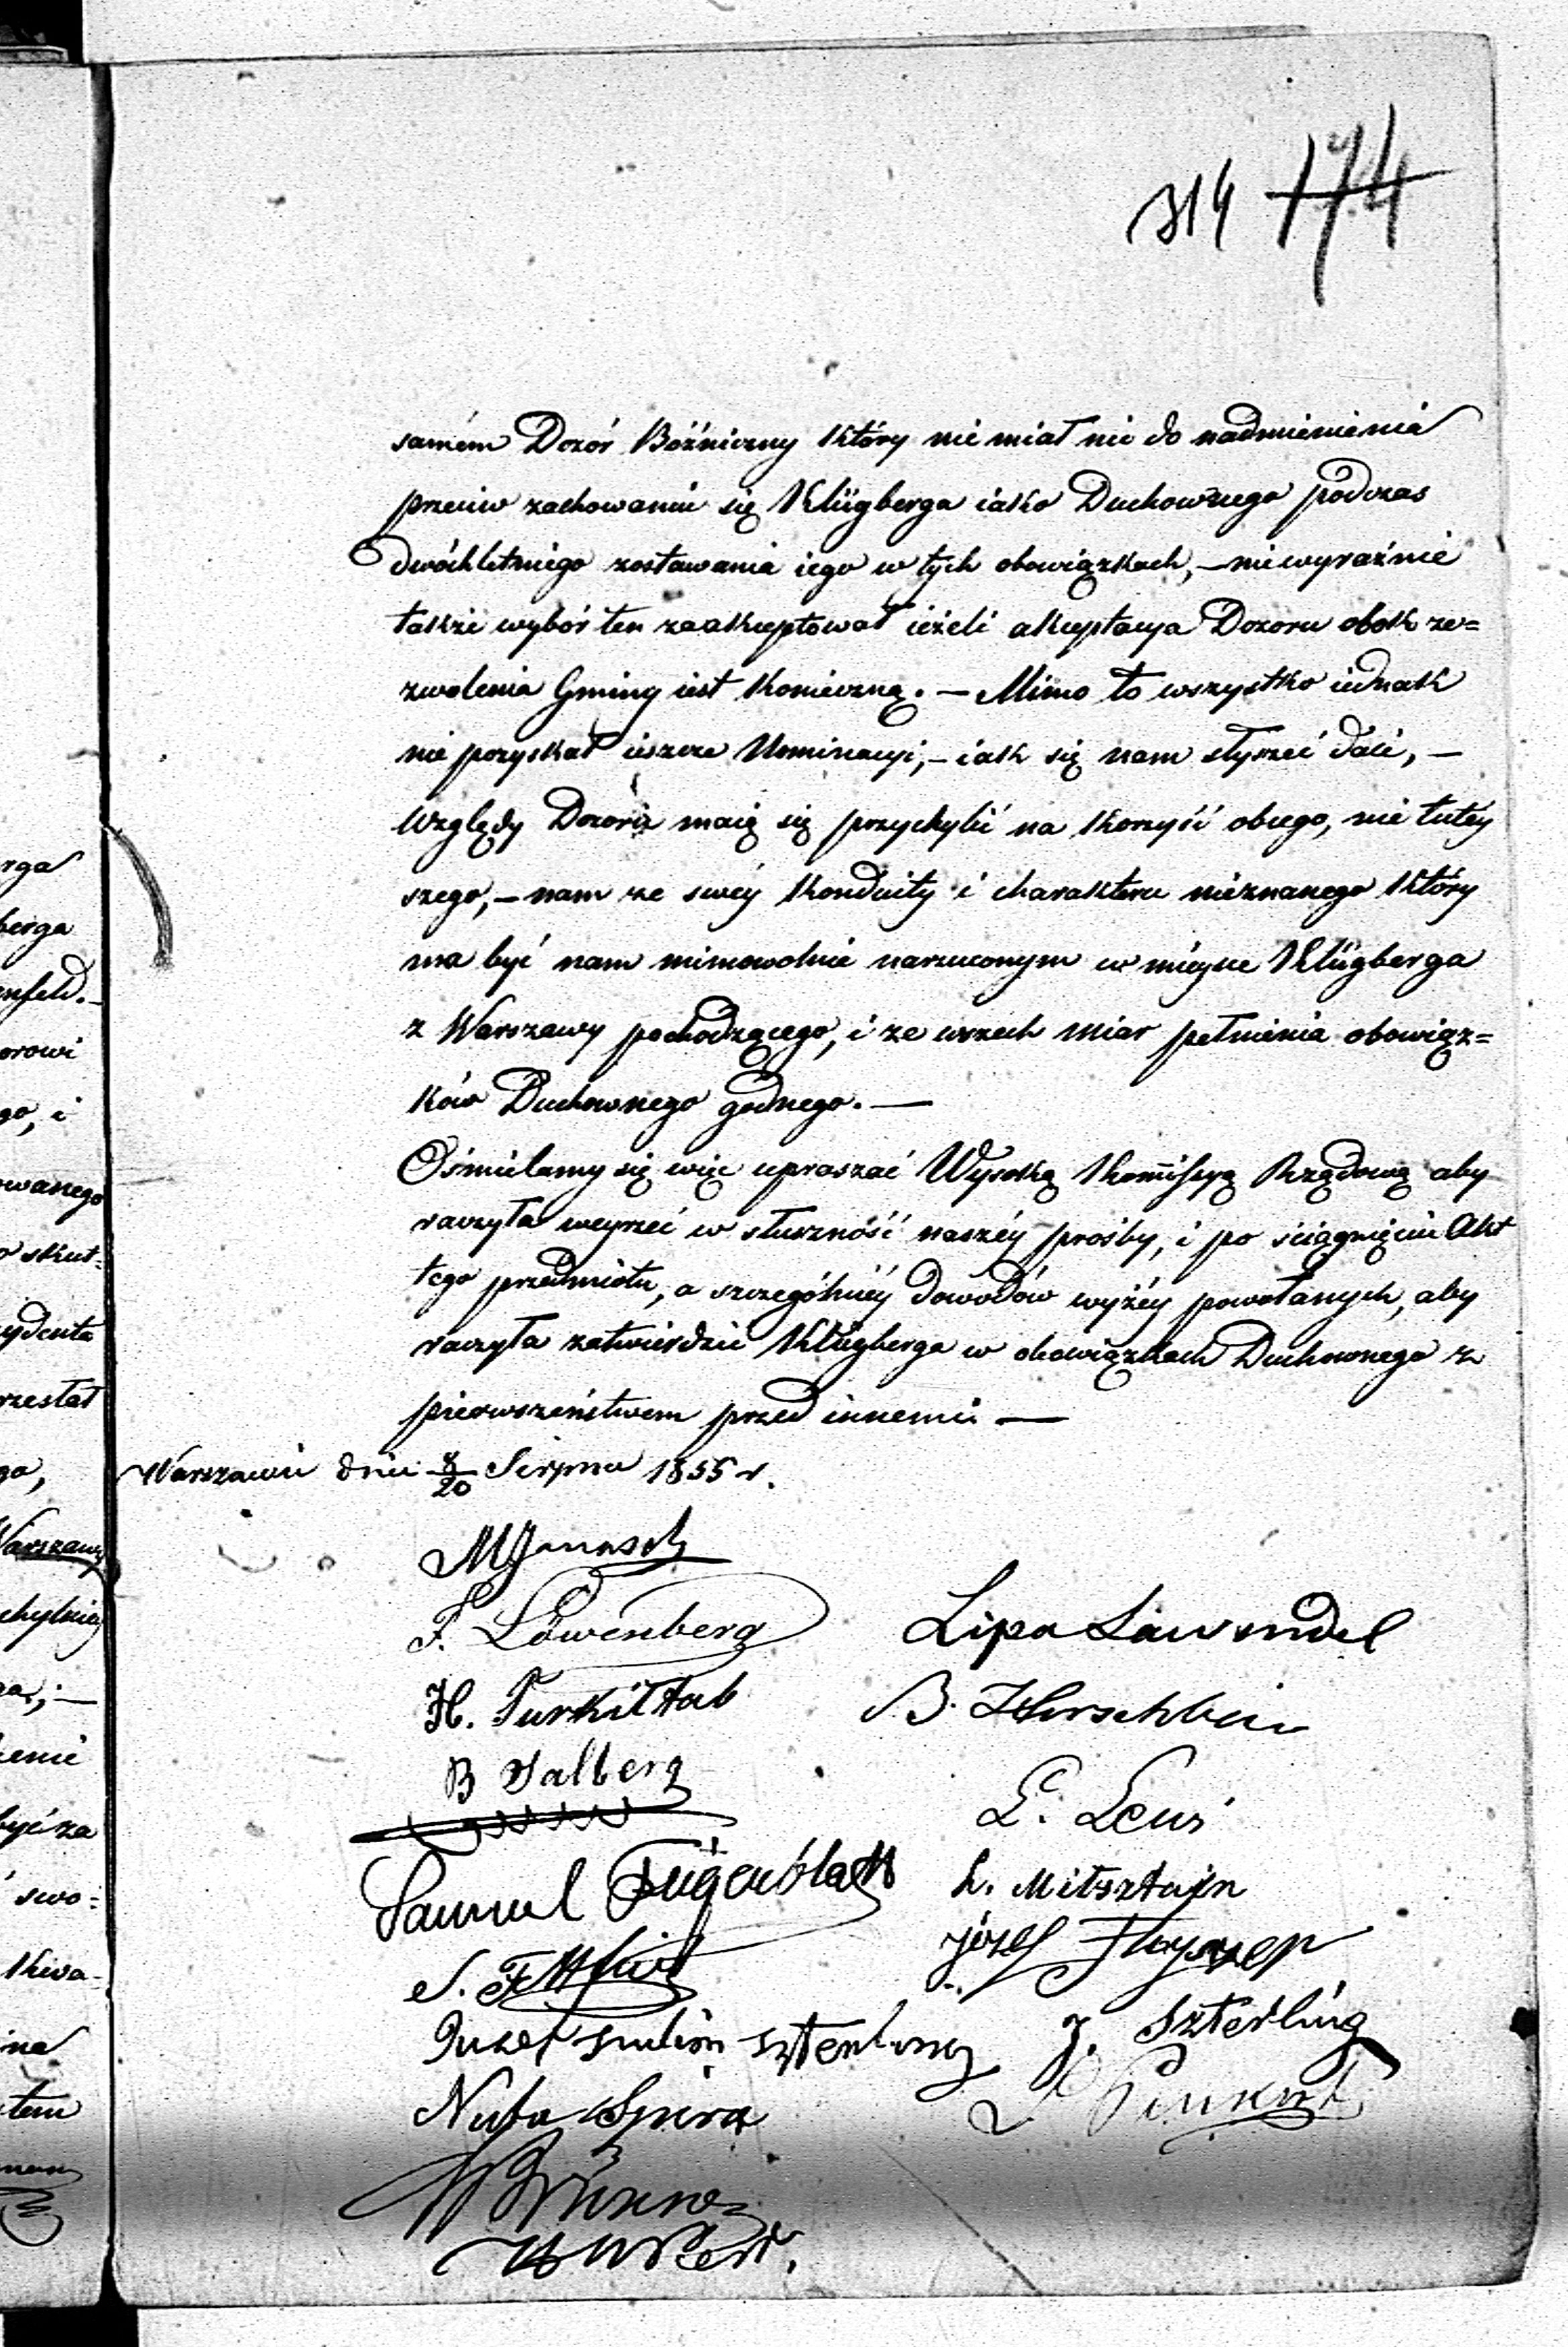 314 174
samém Dozór Bóżniczny który nie miał nic do nadmienienia
przeciw zachowaniu się Klügberga iako Duchownego podczas
dwóchletniego zostawania iego w tych obowiązkach, – niewyraźnie
także wybór ten zaakceptował ieżeli akceptacya Dozoru obok ze=
zwolenia Gminy iest konieczną. – Mimo to wszystko iednak
nie pozyskał ieszcze Nominacyi, – iak się nam słyszeć daie, –
Względy Dozoru maią się przychylić na korzyść obcego, nie tutey
szego, – nam ze swéy konduity i charakteru nieznanego który
ma być nam mimowolnie narzuconym w mieysce Klügberga
z Warszawy pochodzącego, i ze wszech miar pełnienia obowiąz=
ków Duchownego godnego. —
Ośmielamy się więc upraszać Wysoką Kommissyą Rządową aby
raczyła weyrzeć w słuszność naszéy prośby, i po ściągnięciu Akt
tego przedmiotu, a szczególniéy dowodów wyżéy powołanych, aby
raczyła zatwierdzić Klügberga w obowiązkach Duchownego z
pierwszeństwem przed innemi —
Warszawie dnia 8/20 Sierpnia 1855 r.
M Janasch
F. Löwenberg Lipa Lawendel
H. Turkiltab B.
B Salberg L.
Samuel Feigenblatt L. Mitsztajn
S. Józef
J. Szterling
Nuta Spira